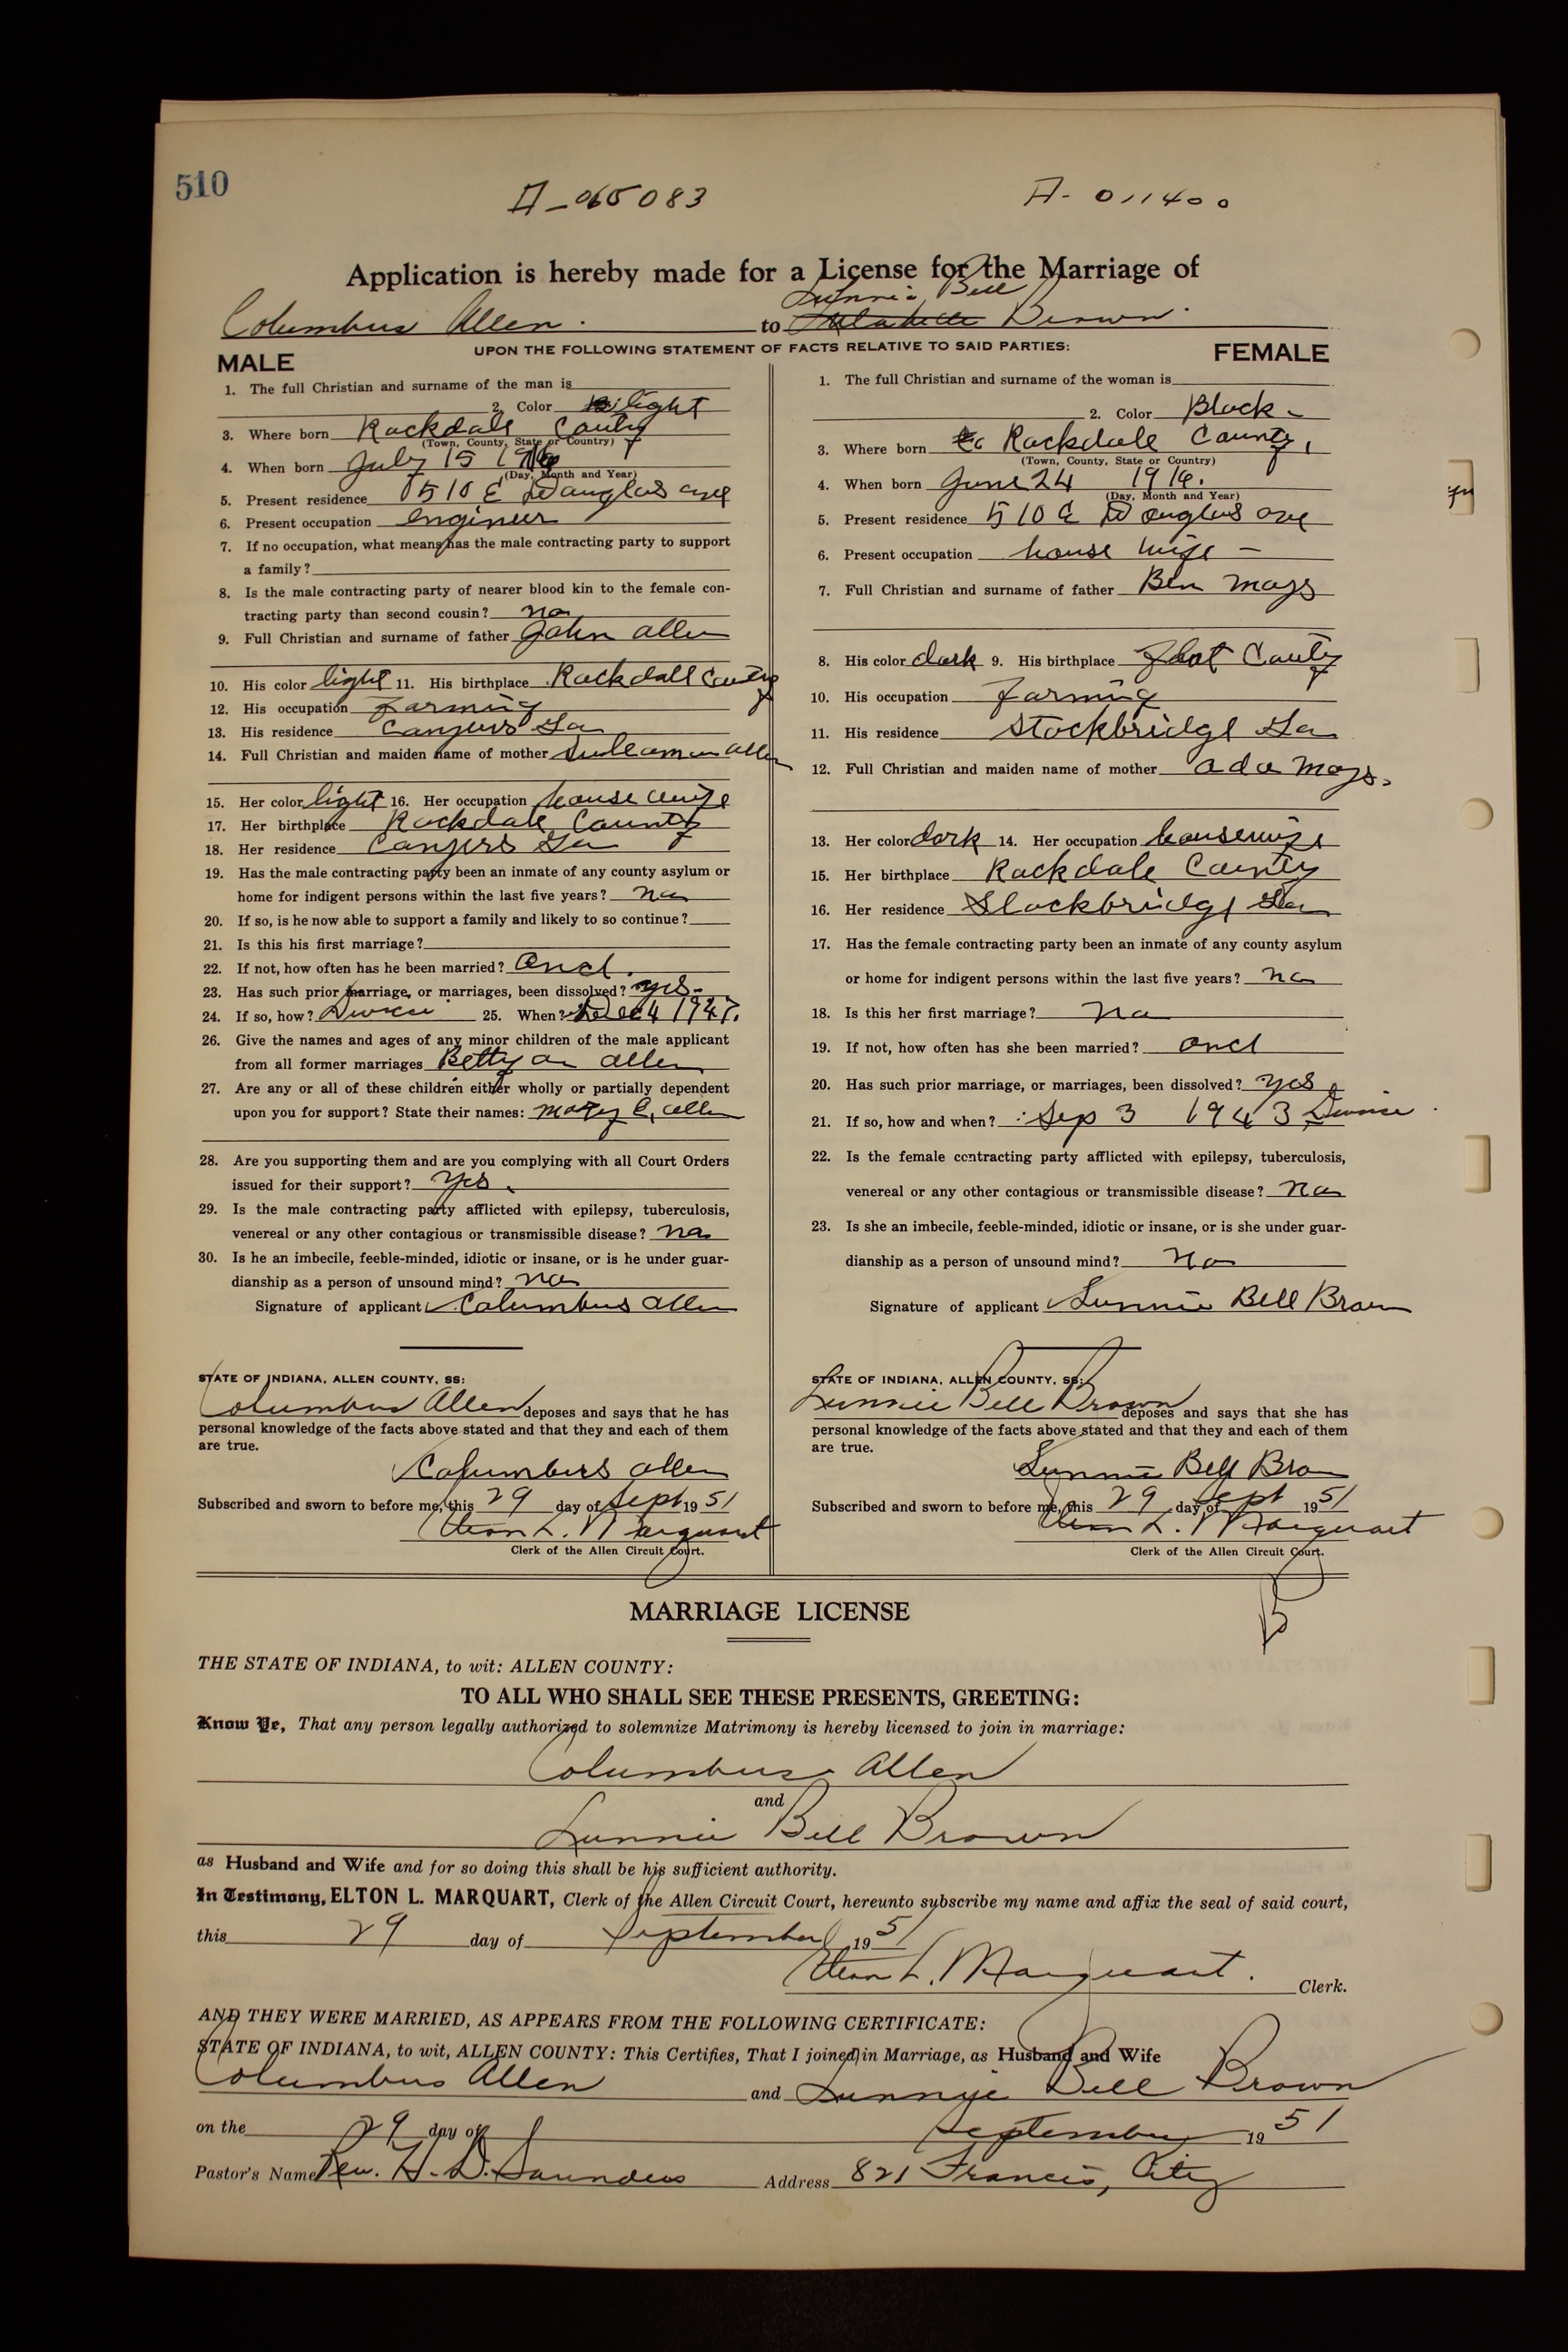 510
A-065083 A-011400
Application is hereby made for a License for the Marriage of
Lunnie Bell
Columbus Allen. to Brown.
UPON THE FOLLOWING STATEMENT OF FACTS RELATIVE TO SAID PARTIES:
MALE
1. The full Christian and surname of the man is
2. Color light
3. Where born Rockdale County
(Town, County, State or Country)
4. When born July 15
(Day, Month and Year)
5. Present residence 510 E Douglas ave
6. Present occupation engineer
7. If no occupation, what means has the male contracting party to support
a family?
8. Is the male contracting party of nearer blood kin to the female con-
tracting party than second cousin? no
9. Full Christian and surname of father John allen
10. His color light 11. His birthplace Rockdall County
12. His occupation Farming
13. His residence Canyers Ga
14. Full Christian and maiden name of mother allen
15. Her color light 16. Her occupation house wife
17. Her birthplace Rockdale County
18. Her residence Canyers Ga
19. Has the male contracting party been an inmate of any county asylum or
home for indigent persons within the last five years? no
20. If so, is he now able to support a family and likely to so continue?
21. Is this his first marriage?
22. If not, how often has he been married? Oncl.
23. Has such prior marriage, or marriages, been dissolved? yes-
24. If so, how? Divorce 25. When? Dec 4 1947.
26. Give the names and ages of any minor children of the male applicant
from all former marriages Betty an allen
27. Are any or all of these children either wholly or partially dependent
upon you for support? State their names: Mary E, allen
28. Are you supporting them and are you complying with all Court Orders
issued for their support? Yes.
29. Is the male contracting party afflicted with epilepsy, tuberculosis,
venereal or any other contagious or transmissible disease? no
30. Is he an imbecile, feeble-minded, idiotic or insane, or is he under guar-
dianship as a person of unsound mind? no
Signature of applicant Columbus allen
STATE OF INDIANA, ALLEN COUNTY, SS:
Columbus Allen deposes and says that he has
personal knowledge of the facts above stated and that they and each of them
are true.
Columbus allen
Subscribed and sworn to before me, this 29 day of Sept 1951
Elton L. Marquart
Clerk of the Allen Circuit Court.
FEMALE
1. The full Christian and surname of the woman is
2. Color Black-
3. Where born Rockdale County,
(Town, County, State or Country)
4. When born June 24 1916.
(Day, Month and Year)
5. Present residence 510 E Douglas ave
6. Present occupation house wife -
7. Full Christian and surname of father Ben Mays
8. His color dark 9. His birthplace County
10. His occupation Farming
11. His residence Stockbridge Ga
12. Full Christian and maiden name of mother Ada Mays.
13. Her color dark 14. Her occupation housewife
15. Her birthplace Rockdale County
16. Her residence Stockbridge Ga
17. Has the female contracting party been an inmate of any county asylum
or home for indigent persons within the last five years? no
18. Is this her first marriage? no
19. If not, how often has she been married? oncl
20. Has such prior marriage, or marriages, been dissolved? yes
21. If so, how and when? Sep 3 1943 Divorce
22. Is the female contracting party afflicted with epilepsy, tuberculosis,
venereal or any other contagious or transmissible disease? no
23. Is she an imbecile, feeble-minded, idiotic or insane, or is she under guar-
dianship as a person of unsound mind? no
Signature of applicant Lunnie Bell Brown
STATE OF INDIANA, ALLEN COUNTY, SS:
Lunnie Bell Brown deposes and says that she has
personal knowledge of the facts above stated and that they and each of them
are true.
Lunnie Bell Brown
Subscribed and sworn to before me, this 29 day of Sept 1951
Elton L. Marquart
Clerk of the Allen Circuit Court.
B
MARRIAGE LICENSE
THE STATE OF INDIANA, to wit: ALLEN COUNTY:
TO ALL WHO SHALL SEE THESE PRESENTS, GREETING:
Know Ye, That any person legally authorized to solemnize Matrimony is hereby licensed to join in marriage:
Columbus Allen
and
Lunnie Bell Brown
as Husband and Wife and for so doing this shall be his sufficient authority.
In Testimony, ELTON L. MARQUART, Clerk of the Allen Circuit Court, hereunto subscribe my name and affix the seal of said court,
this 29 day of September 1951
Elton L. Marquart. Clerk.
AND THEY WERE MARRIED, AS APPEARS FROM THE FOLLOWING CERTIFICATE:
STATE OF INDIANA, to wit, ALLEN COUNTY: This Certifies, That I joined in Marriage, as Husband and Wife
Columbus Allen and Lunnye Bell Brown
on the 29 day of September 1951
Pastor's Name Rev. H. D. Saunders Address 821 Francis, City